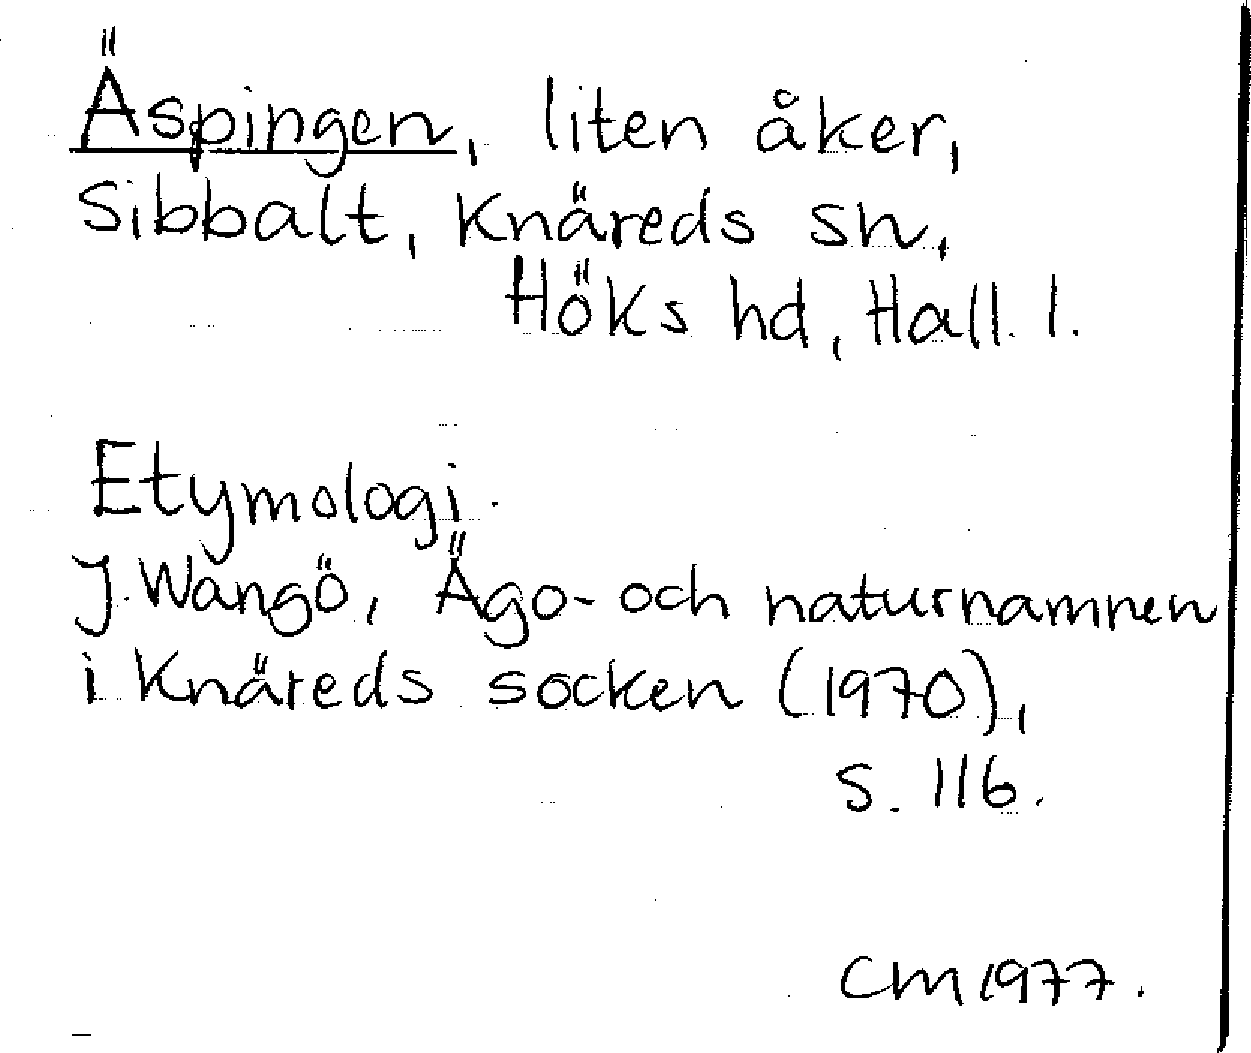 Äspingen, liten åker,
Sibbalt, Knäreds sn,
Höks hd, Hall. l.
Etymologi.
J. Wangö, Ägo- och naturnamnen
i Knäreds socken (1970),
s. 116.
CM 1977.